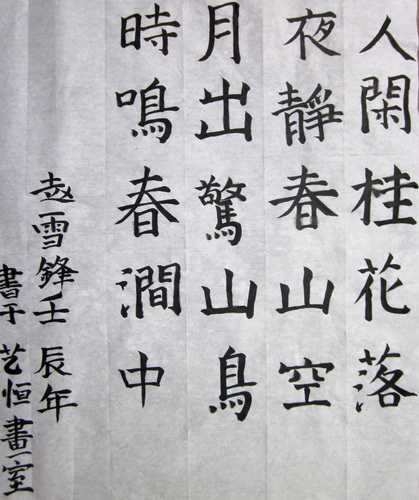 人閑桂花落
夜靜春山空
月出驚山鳥
時鳴春澗中
赵雪鋒壬辰年
書于艺恒畫室